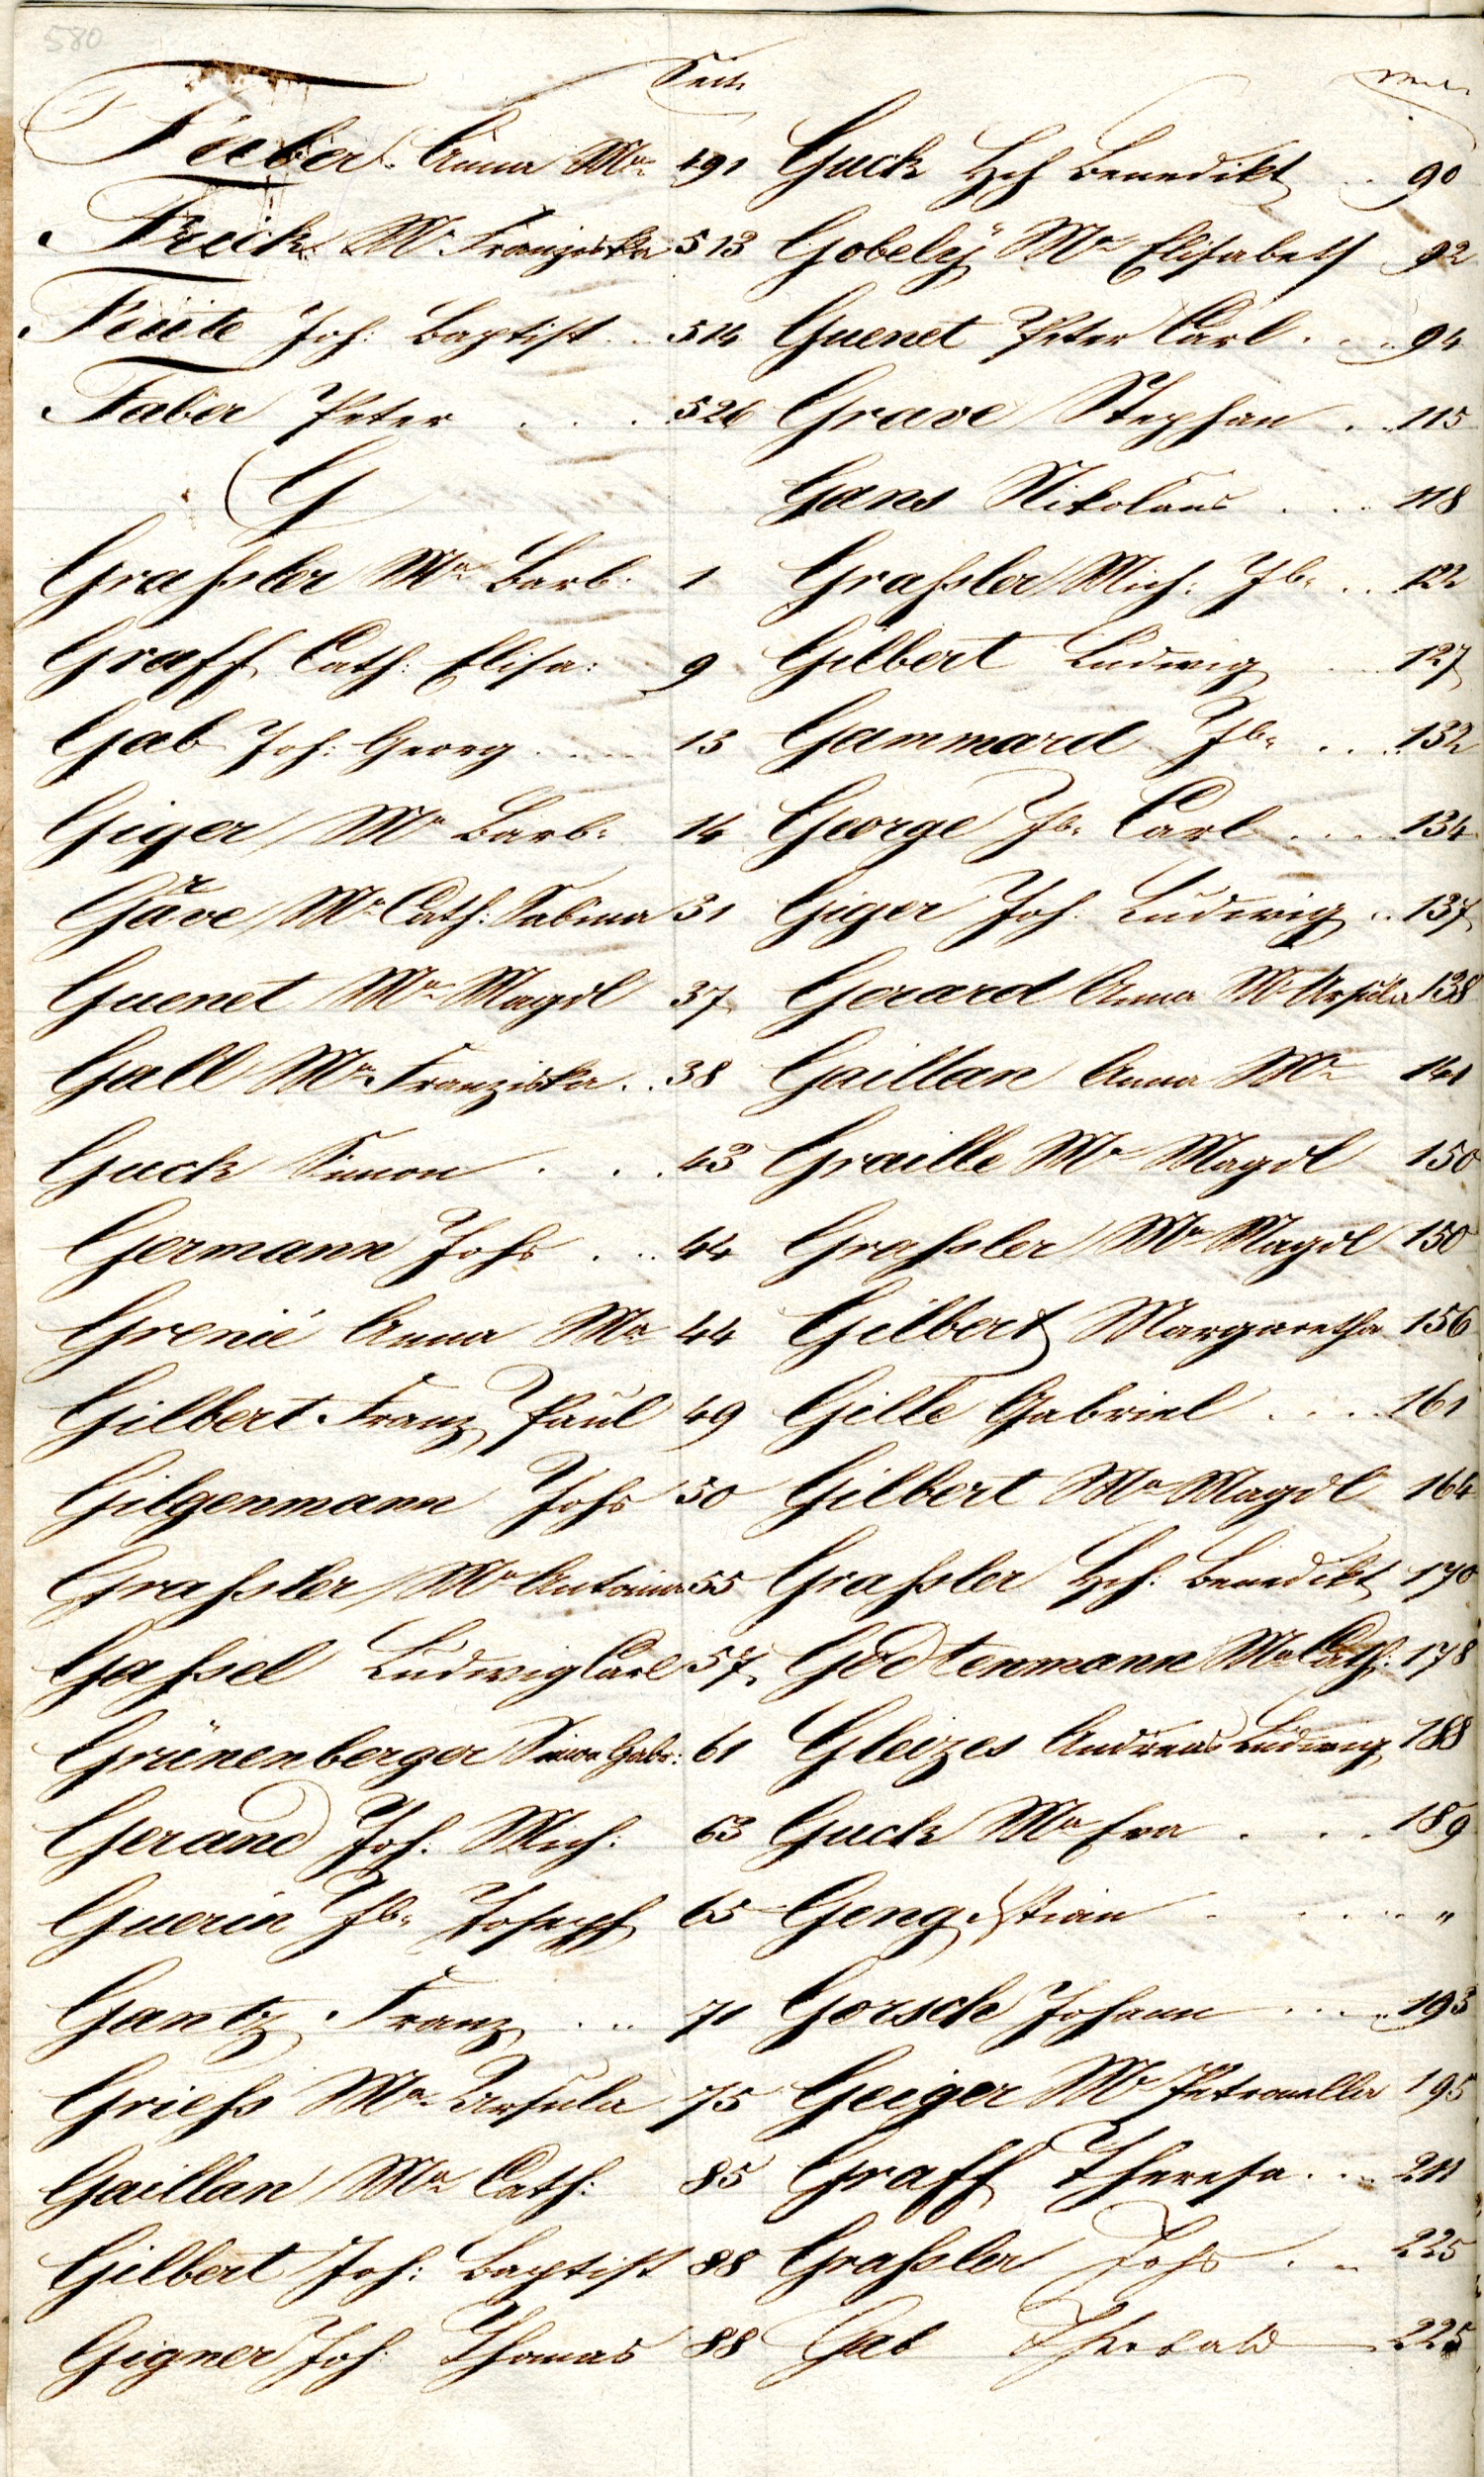 580
Seite
Faber Anna Mª 491
Frick Mª Franziska 513
Feüte Joh: Baptist .. 514
Faber Peter . . . . 526
G
Graßler Mª Barb: 1
Graff Cath: Elisa: 9
Gab Joh: Georg .... 13
Giger Mª Barb: 14
Gräve Mª Cath: Sabina 31
Guenet Mª Magdl 37
Gall Mª Franziska .. 38
Guck Simon . . . 43
Germann Johs . .. 44
Grenié Anna Mª 44
Gilbert Franz Paul 49
Gilgenmann Johs 50
Graßler Mª Antonia 55
Gaßel Ludwig Carl 57
Grünenberger Simon Gabr: 61
Gerand Joh: Mich: 63
Guerin Jb: Joseph 65
Gantz Franz . .. 71
Grieß Mª Ursula 75
Gaillan Mª Cath: 85
Gilbert Joh: Baptist 88
Gigner Joh: Thomas 88
Guck Hch Benedikt .. 90
Gobely Mª Elisabeth 92
Guenet Peter Carl . .. 94
Grave Stephan . .. 115
Gans Nikolaus . .. 118
Graßler Mich: Jb: .. 122
Gilbert Ludwig .. 127
Gammard Jb: . .. 132
George Jb: Carl .... 134
Giger Joh. Ludwig .. 137
Gerard Anna Mª Ursula 138
Gaillan Anna Mª 141
Graille Mª Magdl 150
Graßler Mª Magdl 150
Gilbert Margaretha 156
Gille Gabriel .... 161
Gilbert Mª Magdl 164
Graßler Hch: Benedikt 170
Godtenmann Mª Cath: 178
Gleizes Andreas Ludwig 188
Guck Mª Eva . . . 189
Geng . . . . "
Gorsch Johann .... 193
Geiger Mª Petronella 195
Graff Theresa . .. 211
Graßler Johs . .. 225
Gab Theobald 225